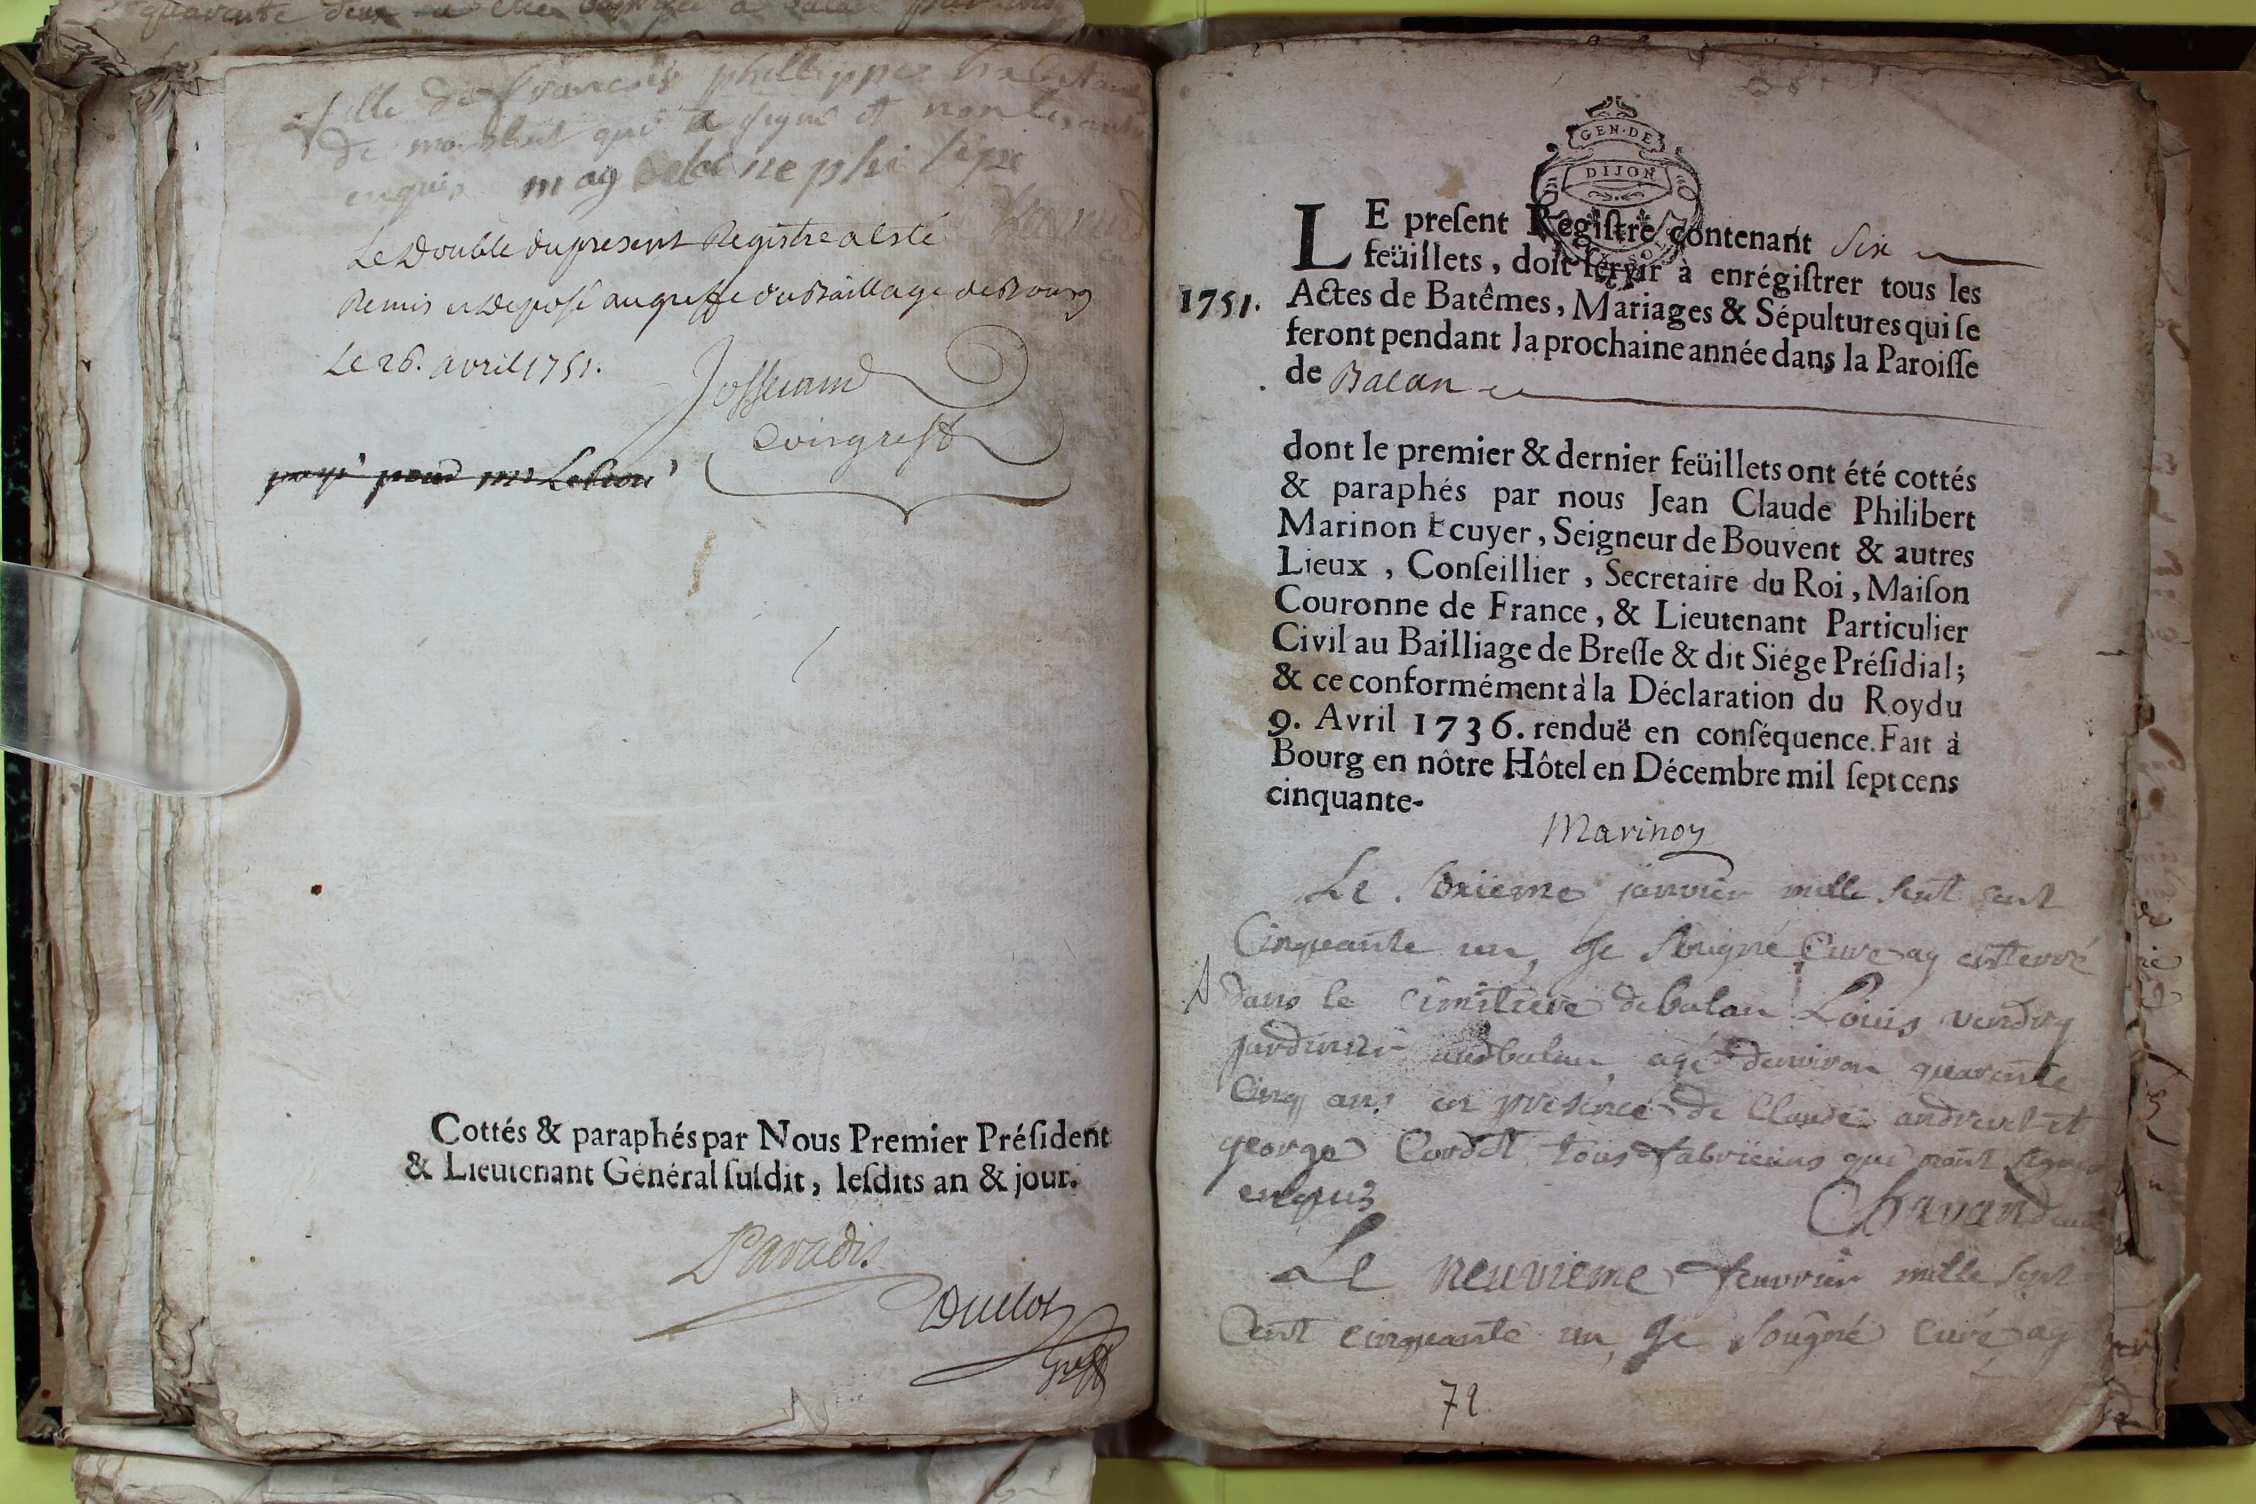 fille de françois philippes habitant
de monbuel qui a signé et non les autres
enquis magdelaine phi lipe
Le Double du present Registre a esté
Remis et Deposé au greffe du Baillage de Bourg
Le 26. avril 1751.
Josserand
Coingreff
payé pour mr Le Curé
Cottés & paraphés par Nous Premier Préſident
& Lieutenant Général ſuſdit, leſdits an & jour.
Paradis.
Duclot
Greff
GEN. DE
DIJON
LE preſent Regiſtre contenant six
feüillets, doit ſervir à enrégiſtrer tous les
1751. Actes de Batêmes, Mariages & Sépultures qui ſe
feront pendant la prochaine année dans la Paroiſſe
de Balan
dont le premier & dernier feüillets ont été cottés
& paraphés par nous Jean Claude Philibert
Marinon Ecuyer, Seigneur de Bouvent & autres
Lieux, Conſeillier, Secretaire du Roi, Maiſon
Couronne de France, & Lieutenant Particulier
Civil au Bailliage de Breſſe & dit Siége Préſidial;
& ce conformément à la Déclaration du Roy du
9. Avril 1736. renduë en conſéquence. Fait à
Bourg en nôtre Hôtel en Décembre mil ſept cens
cinquante-
Marinon
Le onzieme janvier mille sept cent
Cinquante un, Je sougné Curé ay enterré
dans le cimitiere de balan Louis vendry
jardinier audbalan, agé denviron quarante
Cinq ans en presence de Claude andrevet et
george Cordet tous fabriciens qui n'ont signé
enquis
Chavand
Le neuvieme feuvrier mille sept
Cent cinquante un, Je sougné curé ay
72